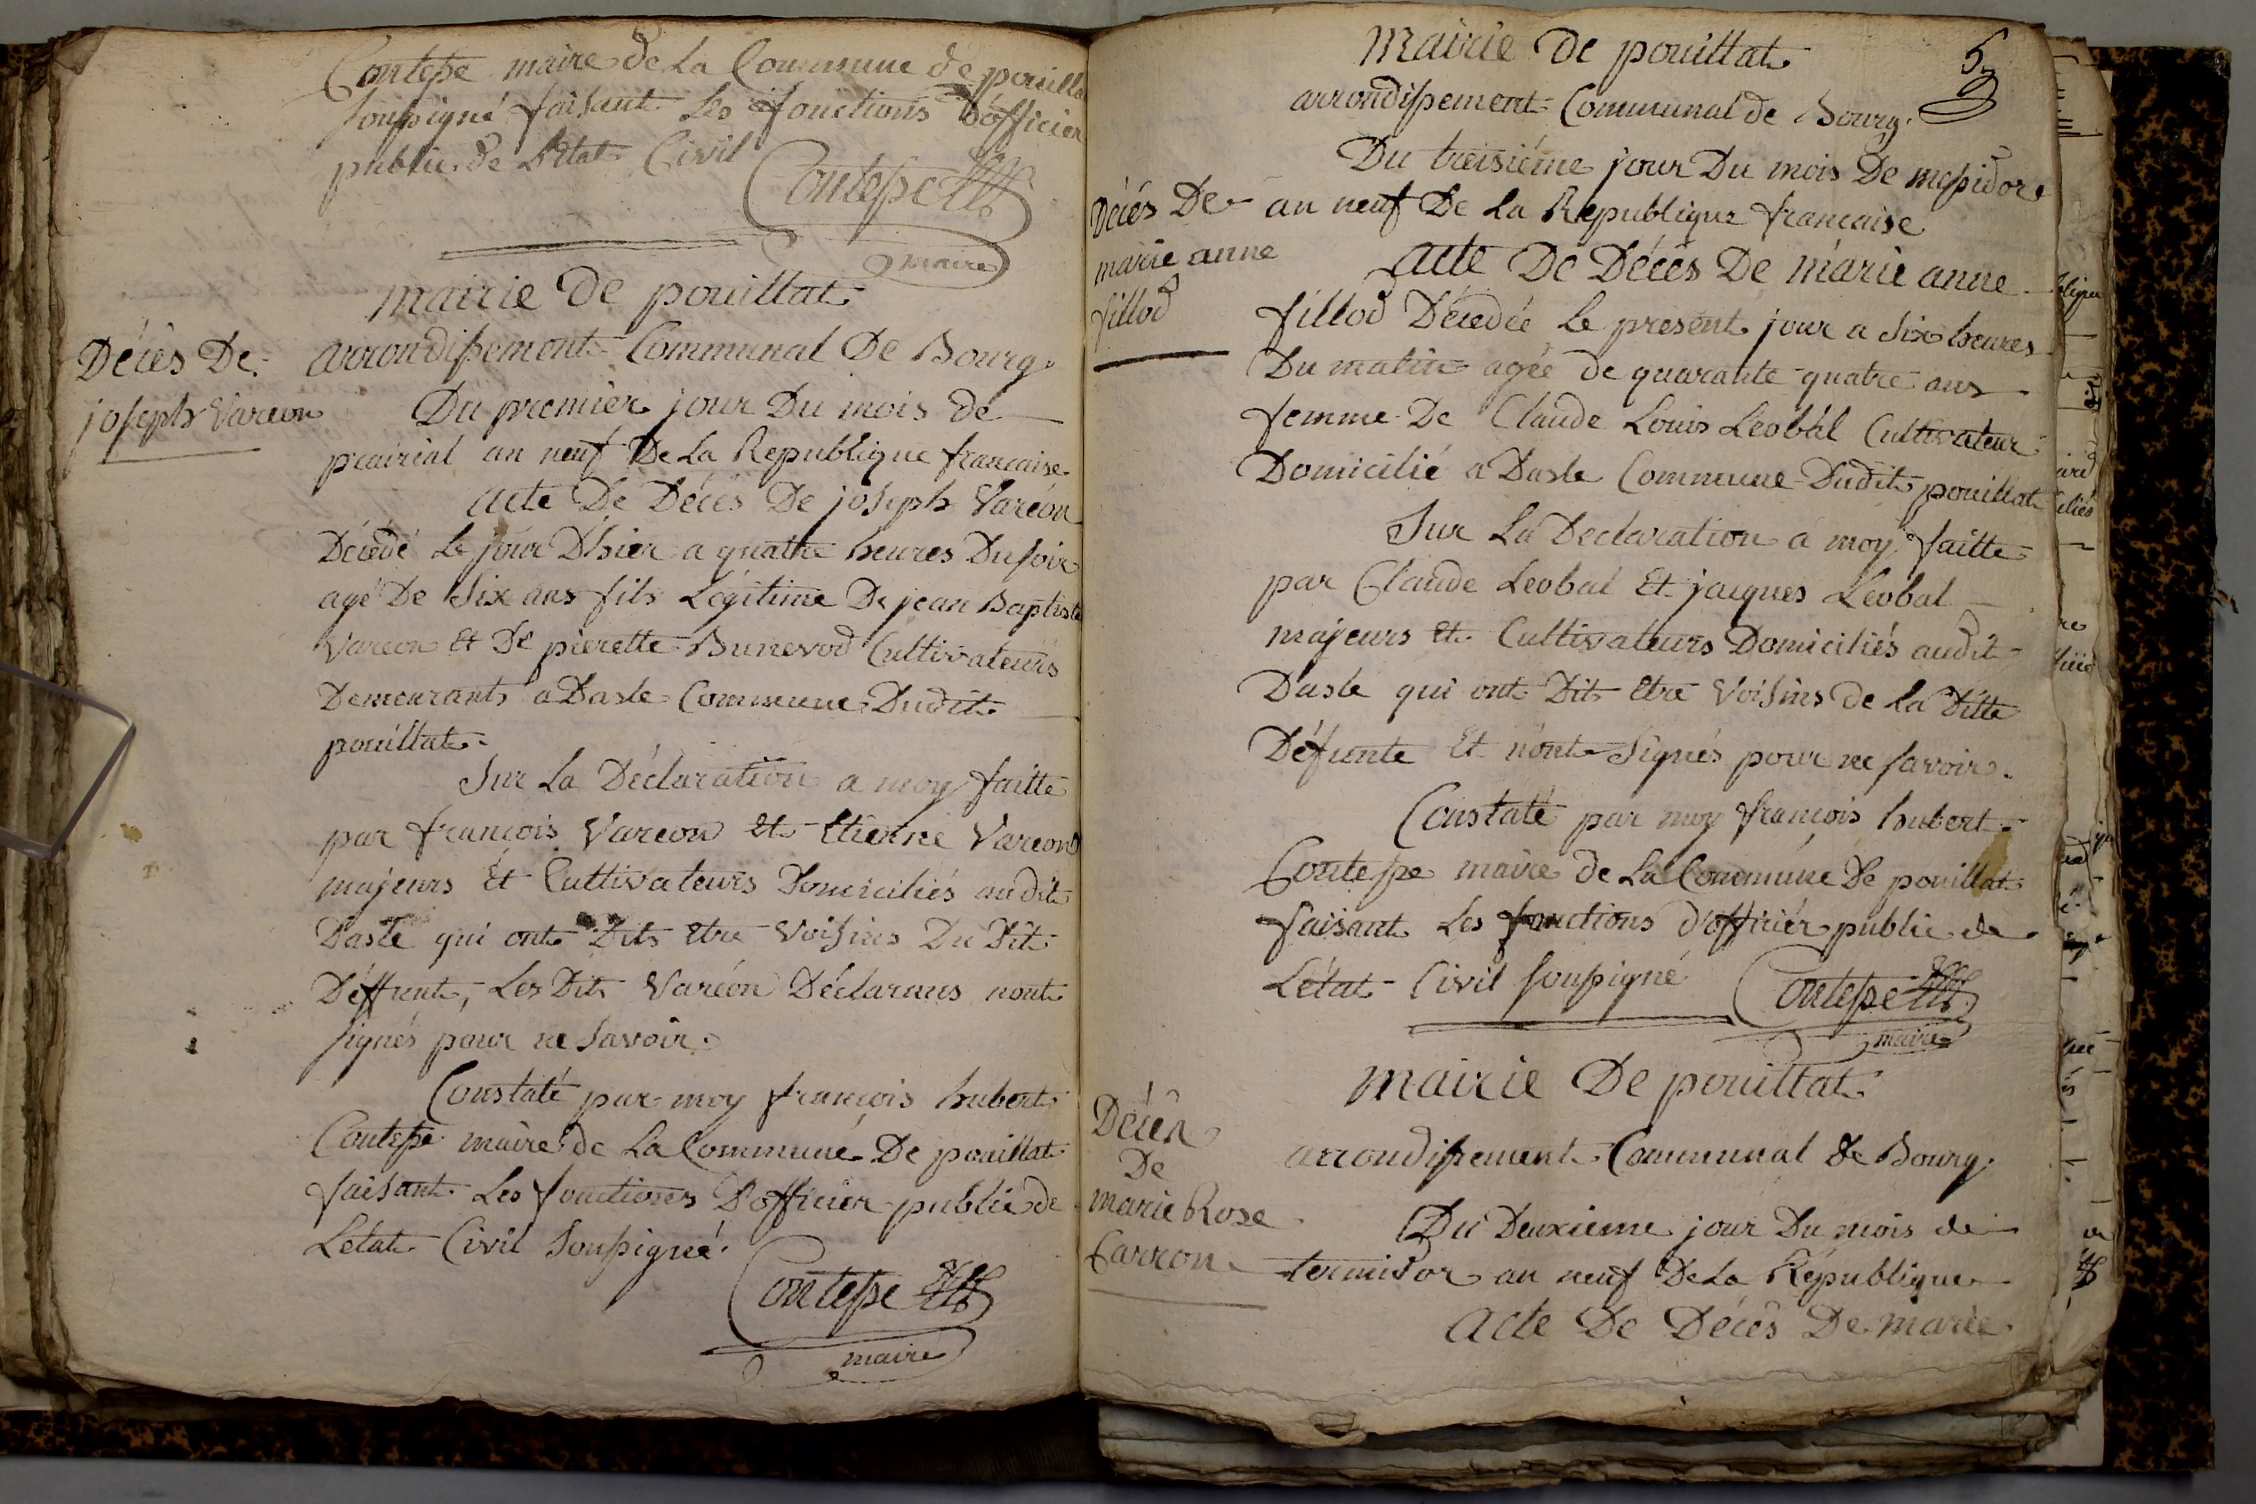 Contesse maire de La Commune de pouillat
soussigné faisant Les fonctions d'officier
public de L'état Civil
Contesse
maire
mairie De pouillat
Décès De
joseph Vareon
arrondissement Communal De Bourg.
Du premier jour Du mois de
prairial an neuf De La Republique francaise
acte De Décès De joseph Varéon
Décédé Le jour D'hier a quatre heures Du soir
agé De Six ans fils Légitime De jean Baptiste
Vareon Et De pierette Bunevod Cultivateurs
Demeurants a Dasle Commune Dudit
pouillat.
Sur La Déclaration a moy faitte
par françois Vareon Et Etienne Vareon
majeurs Et Cultivateurs Domiciliés audit
Dasle qui ont Dits etre Voisins Du Dit
Déffunt, Les Dits Varéon Déclarans nont
signés pour ne Savoir.
Constaté par moy françois hubert
Contesse maire de La Commune De pouillat
faisant Les fonctions D'officier public de
Létat Civil Soussigné.
Contesse
maire
5
Mairie De pouillat
arrondissement Communal de Bourg.
Du treisiéme jour Du mois De messidor
Décés De
marie anne
fillod
an neuf De La Republique francaise
acte De Décès De marie anne
fillod Décedée Le present jour a Six heures
Du matin agée de quarante quatre ans
femme De Claude Louis Léobal Cultivateur
Domicilié a Dasle Commune Dudit pouillat
Sur La Declaration a moy faitte
par Claude Leobal Et jacques Léobal
majeurs Et Cultivateurs Domiciliés audit
Dasle qui ont Dits Etre Voisins de La Ditte
Défunte Et n'ont Signés pour ne savoir.
Constaté par moy françois hubert
Contesse maire de La Commune De pouillat
faisant Les fonctions d'officiér public de
Létat Civil soussigné
Contesse
maire
Mairie De pouillat
Décès
De
marie Rose
Carron
arrondissement Communal De Bourg.
Du Deuxieme jour Du mois de
termidor an neuf De La République
acte De Décès De marie